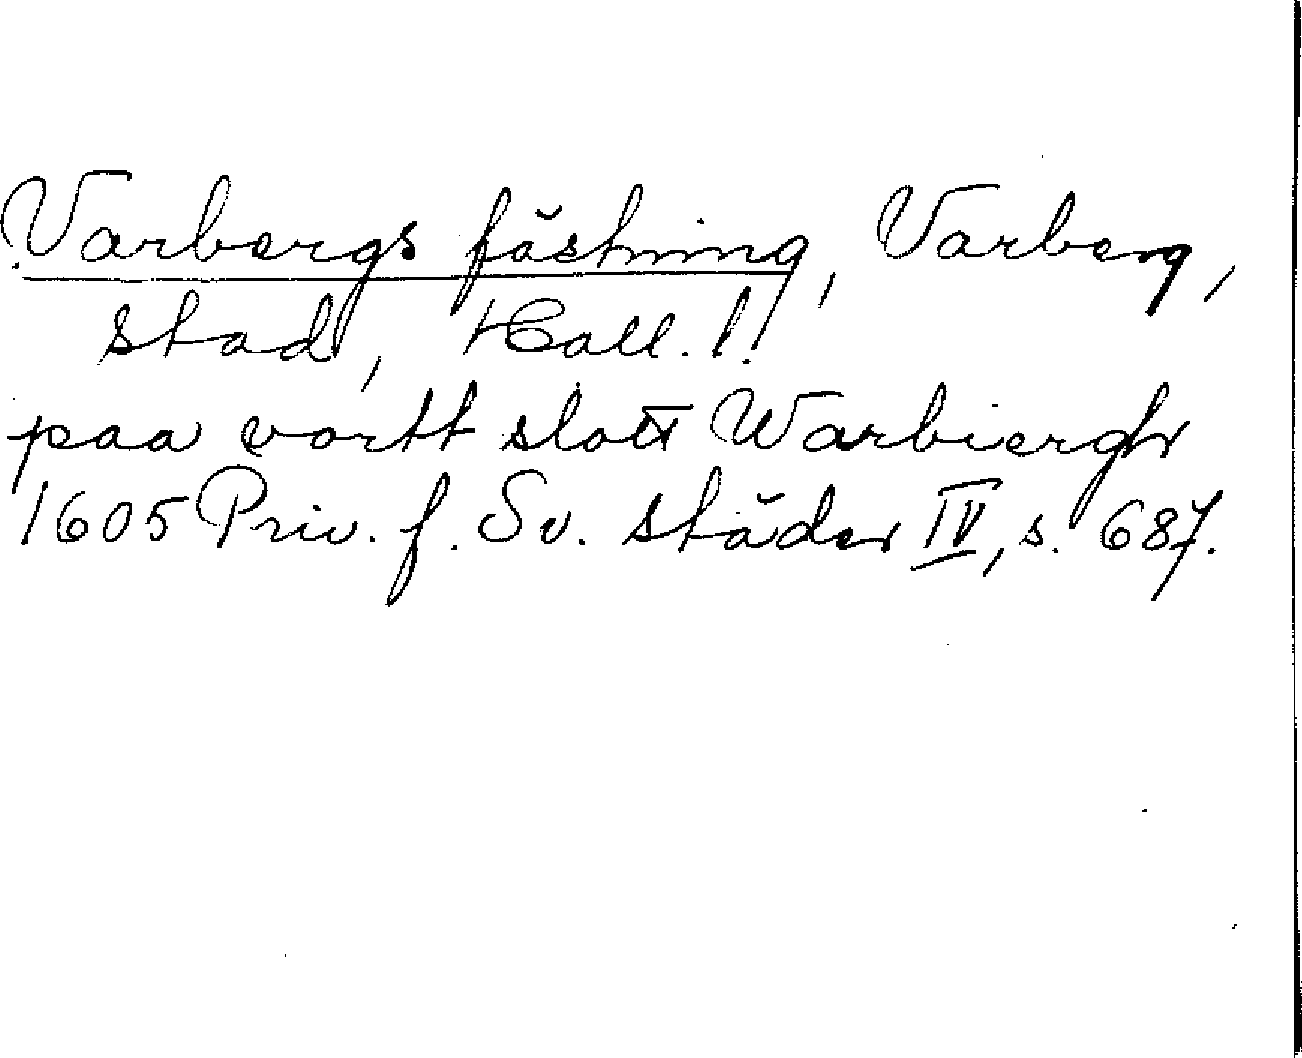 Varbergs fästning, Varberg,
stad, Hall. l.
paa vortt slott Warbiergh
1605 Priv. f. Sv. städer IV, s. 687.